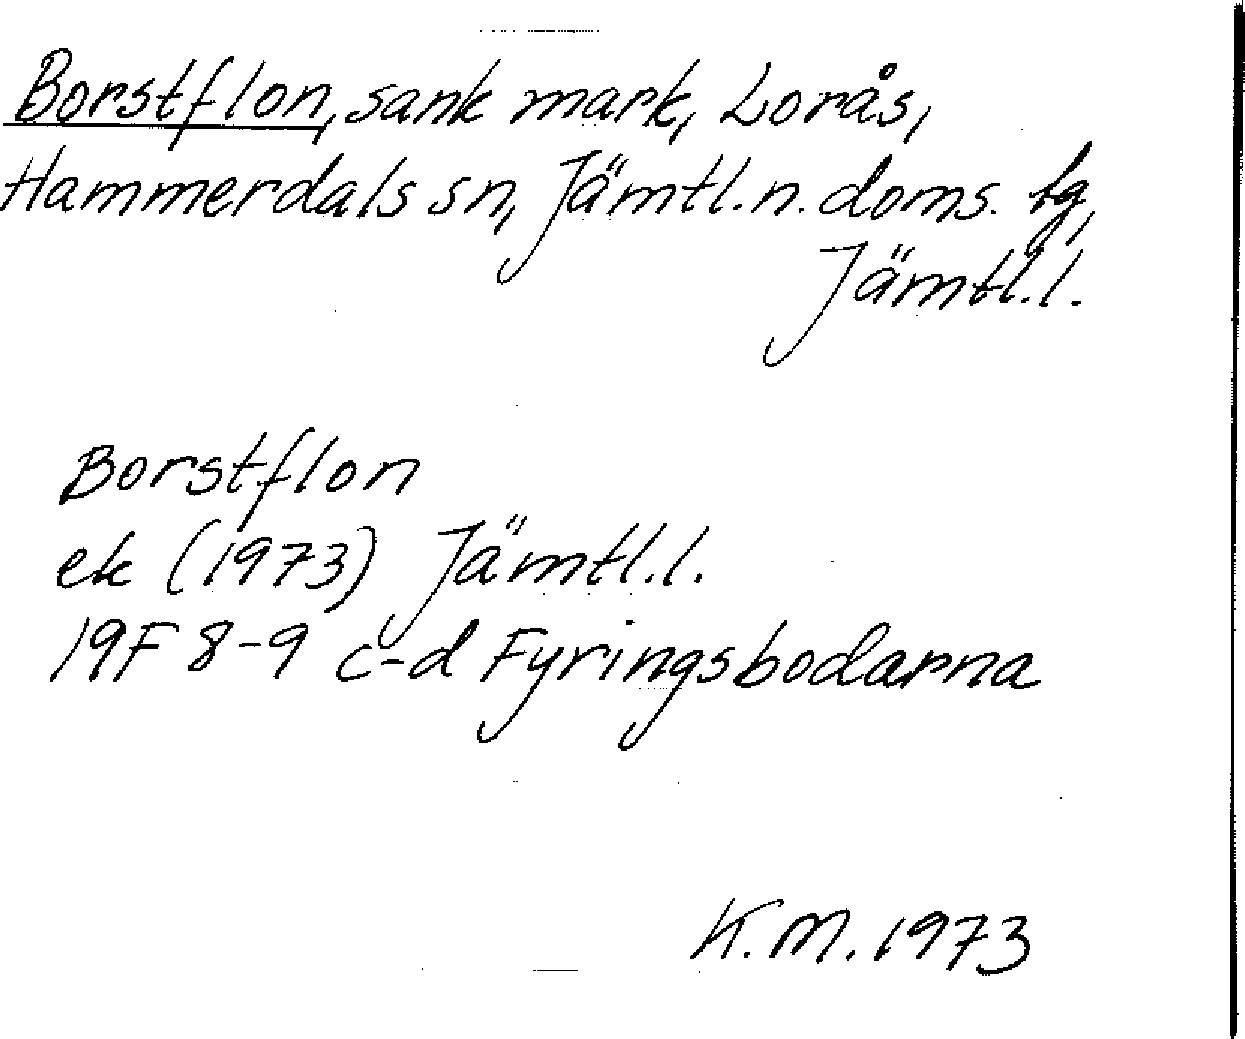 Borstflon, sank mark, Lorås,
Hammerdals sn, Jämtl.n.doms. tg,
Jämtl.l.
Borstflon
ek (1973) Jämtl.l.
19F 8-9 c-d Fyringsbodarna
K.M.1973